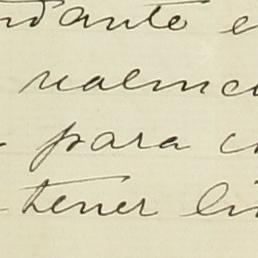 ndante e
ualmen
para c
tener li